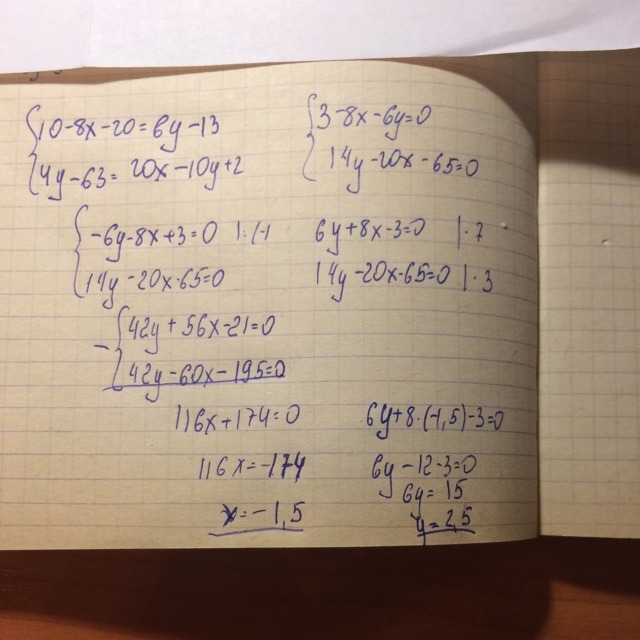 10-8x-20=6y-13
4y-63=20x-10y+2
3-8x-6y=0
14y-20x-65=0
-6y-8x+3=0 |·(-1
14y-20x-65=0
6y+8x-3=0 |·7
14y-20x-65=0 |·3
- 42y+56x-21=0
42y-60x-195=0
116x+174=0
116x=-174
x=-1,5
6y+8·(-1,5)-3=0
6y-12-3=0
6y=15
y=2,5